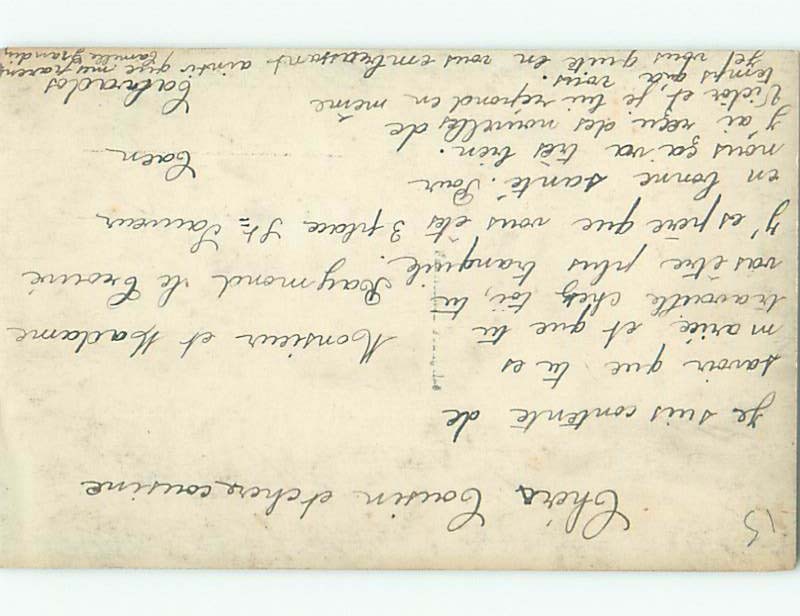 Chèrs Cousin et chère cousine
Je suis contente de
savoir que tu es
marié et que tu
travaille chez toi, tu
vas être plus tranquile.
J'espère que vous êtes
en bonne santé. Pour
nous ça va très bien.
J'ai reçu des nouvelles de
Victor et je lui répond en même
temps qu'à vous.
Je vous quite en vous embrassant ainsi que mes parents
famille Grandin
Monsieur et Madame
Raymond le
3 place St= Sauveur
Caen
Calvados